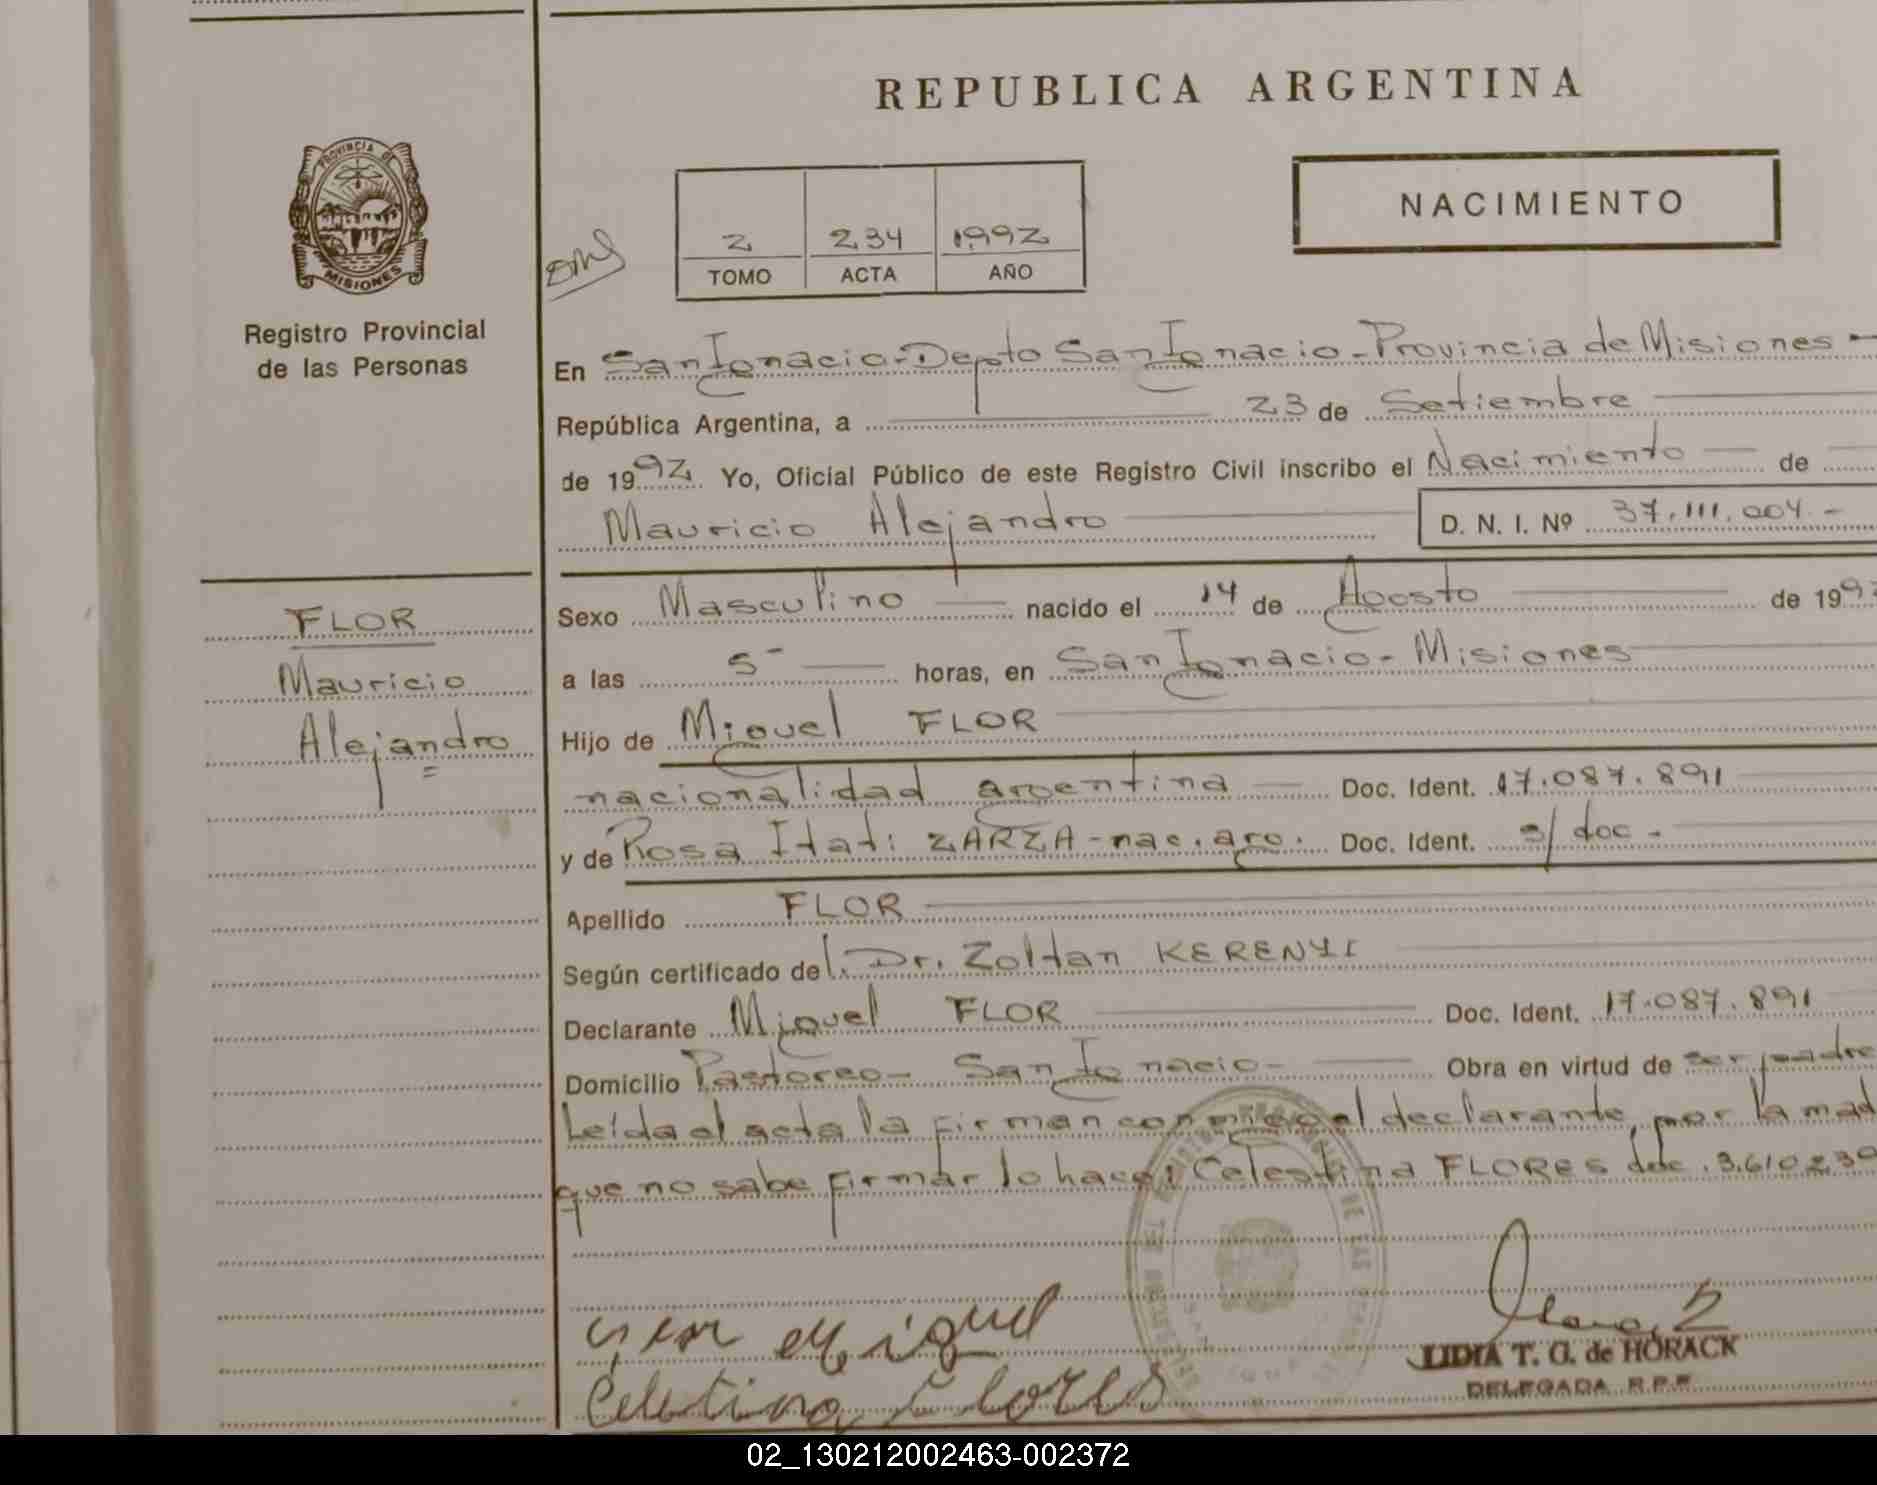 REPUBLICA ARGENTINA
PROVINCIA DE
MISIONES
Registro Provincial
de las Personas
NACIMIENTO
2 234 1992
TOMO ACTA AÑO
En San Ignacio - Depto San Ignacio - Provincia de Misiones -
República Argentina, a 23 de Setiembre
de 1992. Yo, Oficial Público de este Registro Civil inscribo el Nacimiento de
Mauricio Alejandro D. N. I. Nº 37.111.004.-
FLOR
Mauricio
Alejandro
Sexo Masculino nacido el 14 de Agosto de 199
a las 5- horas, en San Ignacio - Misiones
Hijo de Miguel FLOR
nacionalidad argentina Doc. Ident. 17.087.891
y de Rosa Itatí ZARZA - nac. arg. Doc. Ident. s/doc-
Apellido FLOR
Según certificado del. Dr. Zoltan KERENYI
Declarante Miguel FLOR Doc. Ident. 17.087.891
Domicilio Pastoreo - San Ignacio - Obra en virtud de ser padre
Leída el acta la firman conmigo el declarante, por la mad
que no sabe firmar lo hace: Celestina FLORES doc. 3.610.230
Flor Miguel
Celestina Flores
LIDIA T. G. de HORACK
DELEGADA R.P.P.
02_130212002463-002372